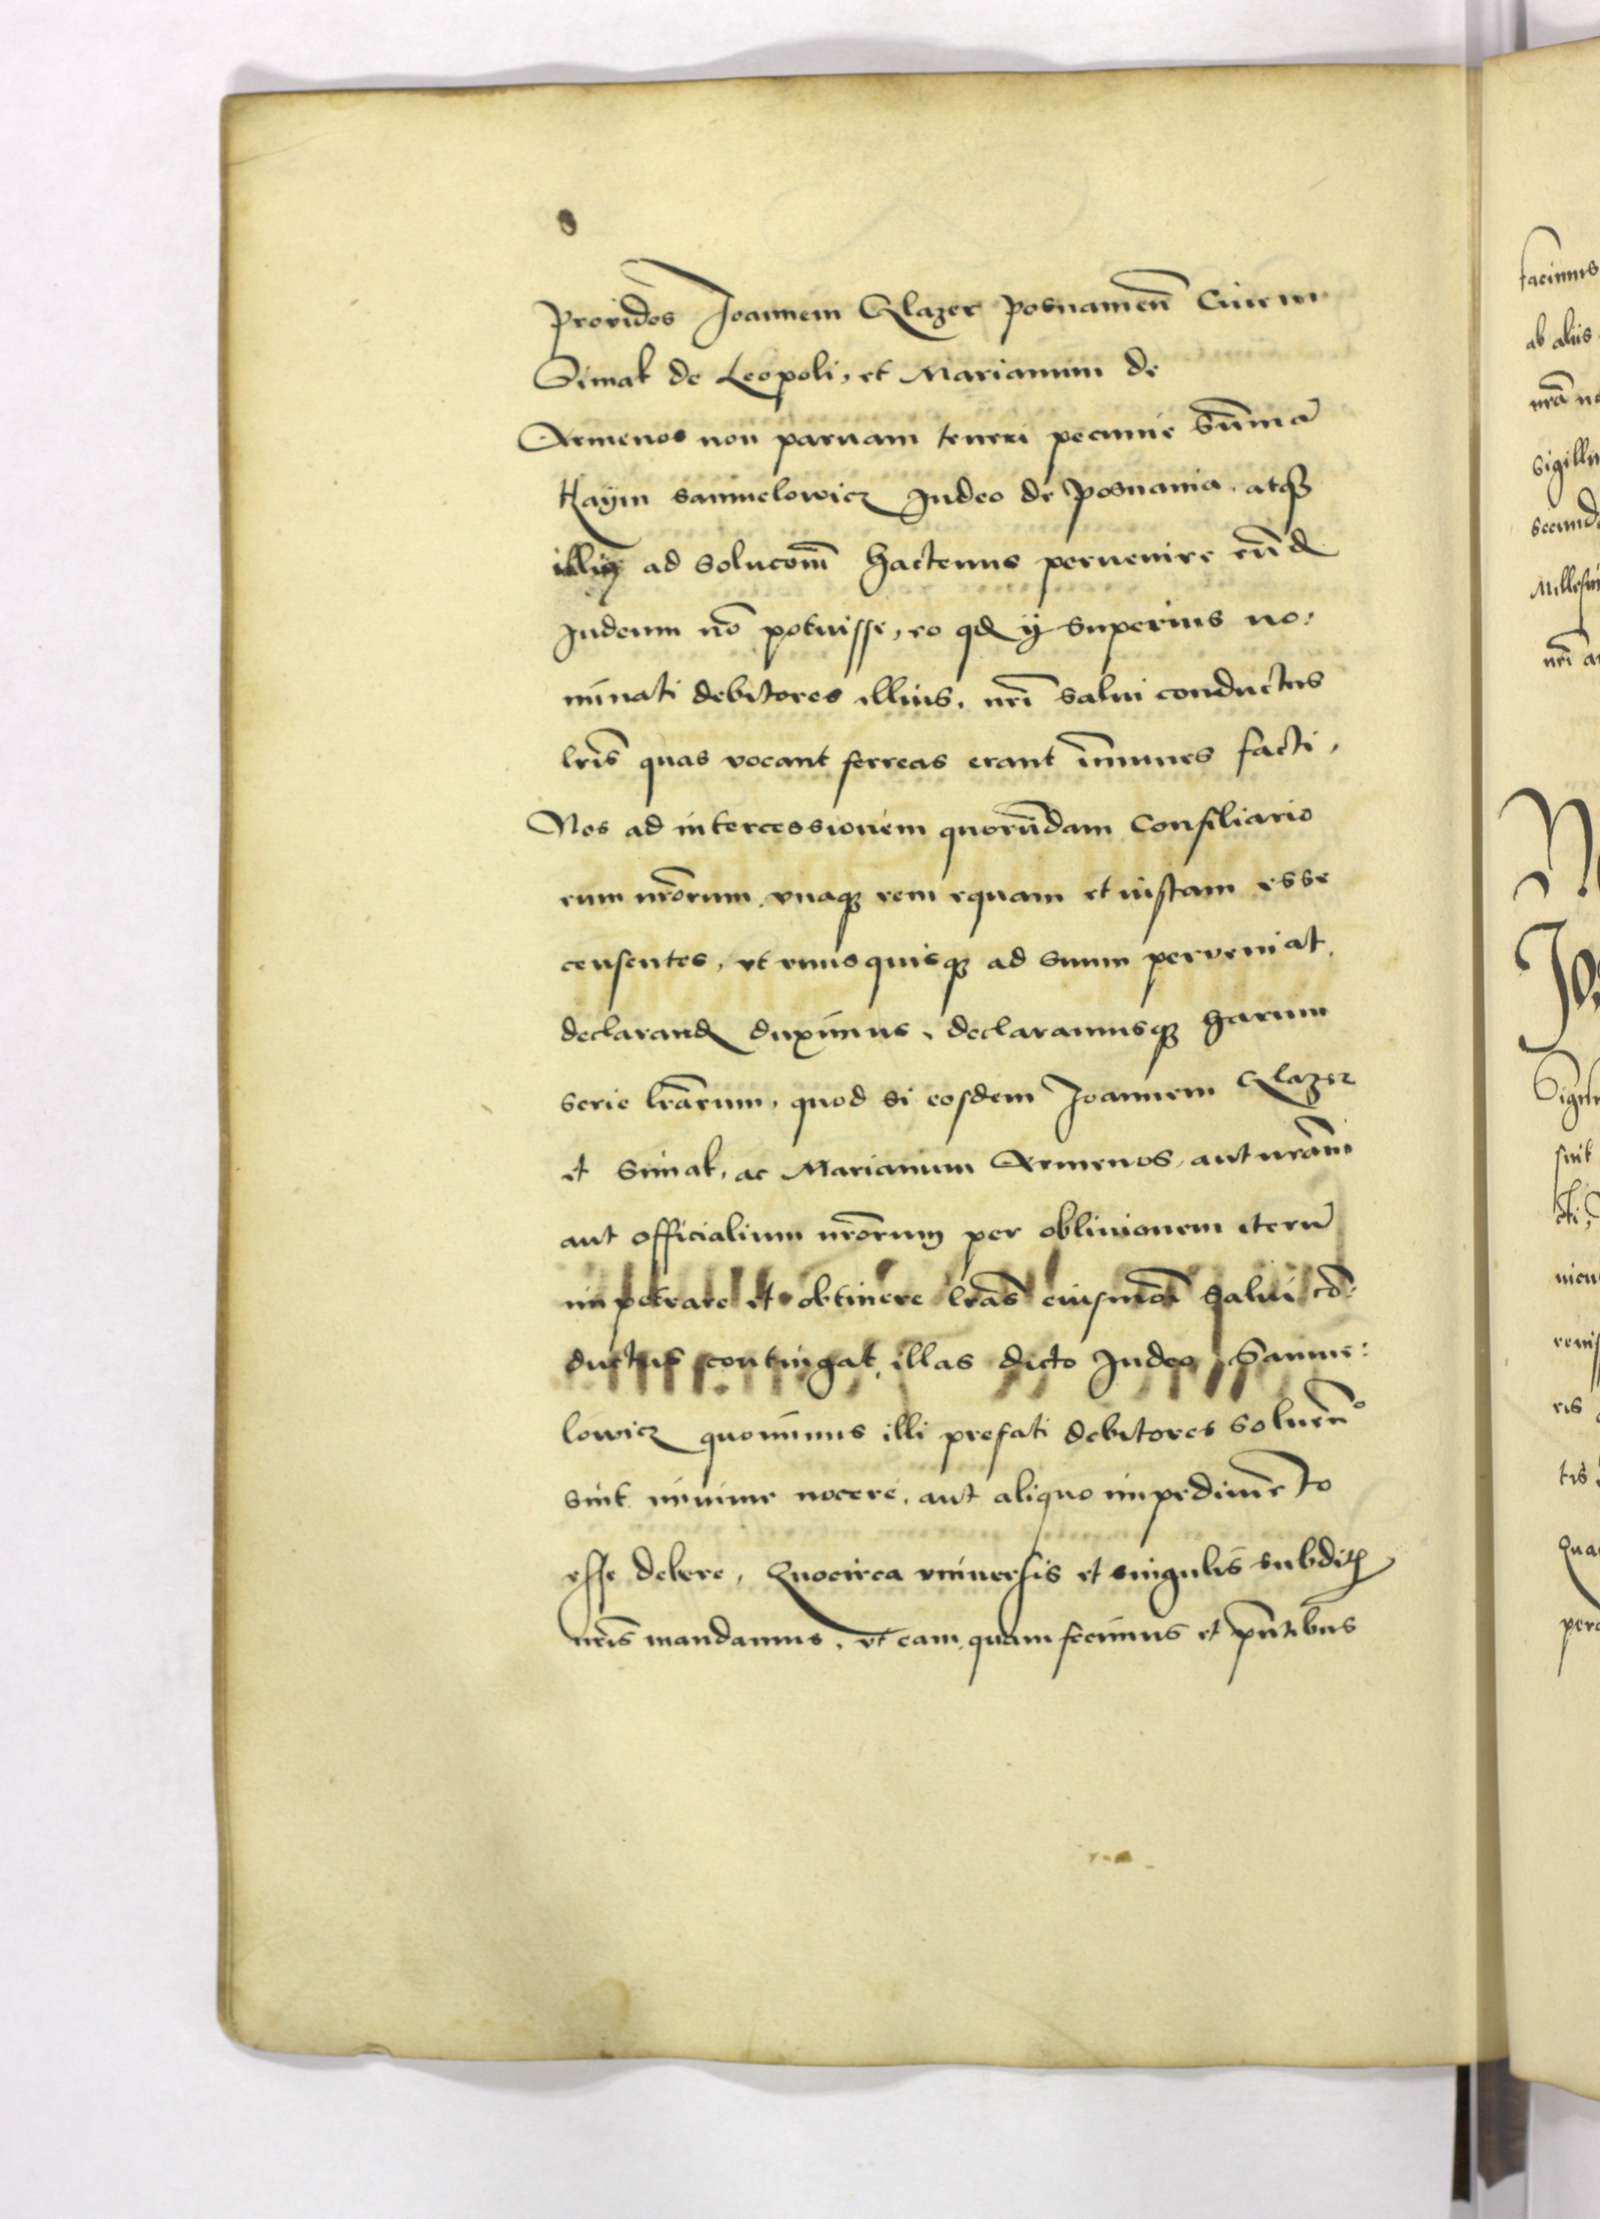 Providos Joannem Glazer posnamen̄ Ciuem
Simak de Leopoli, et Marianum de
Armenos non paruam teneri pecunie sum̄ā
Haÿm samuelowicz Judeo de Posnania. atqz
illiꝫ ad solucōm̄ hactenus peruenire eūd
Judeum nō potuisse, eo qđ ÿ superius no:
minati debitores illius, nr̄i salui conductus
lr̄is quas vocant ferreas erant im̄unes facti,
Nos ad intercessionem quorūdam Consiliario
rum nr̄orum vnaqz rem equam et iustam esse
censentes, vt vnusquisqz ad suum perveniat,
declarand duximus, declaramusqz harum
serie lr̄arum, quod si eosdem Joannem Glazer
et Simak, ac Marianum Armenos, aut nr̄am
aut officialium nr̄orum per obliuionem iterū
impetrare et obtinere lr̄as eiusmōi salui cō:
ductus contingat, illas dicto Judeo Samue:
lowicz quominus illi prefati debitores soluen̄
sint minime nocere, aut aliquo impedimēto
esse debere, Quocirca vniuersis et singulis subditꝭ
nr̄is mandamus, vt eam, quam fecimus et pn̄tibus
facimus
ab aliis
nr̄ā
secund
nr̄i